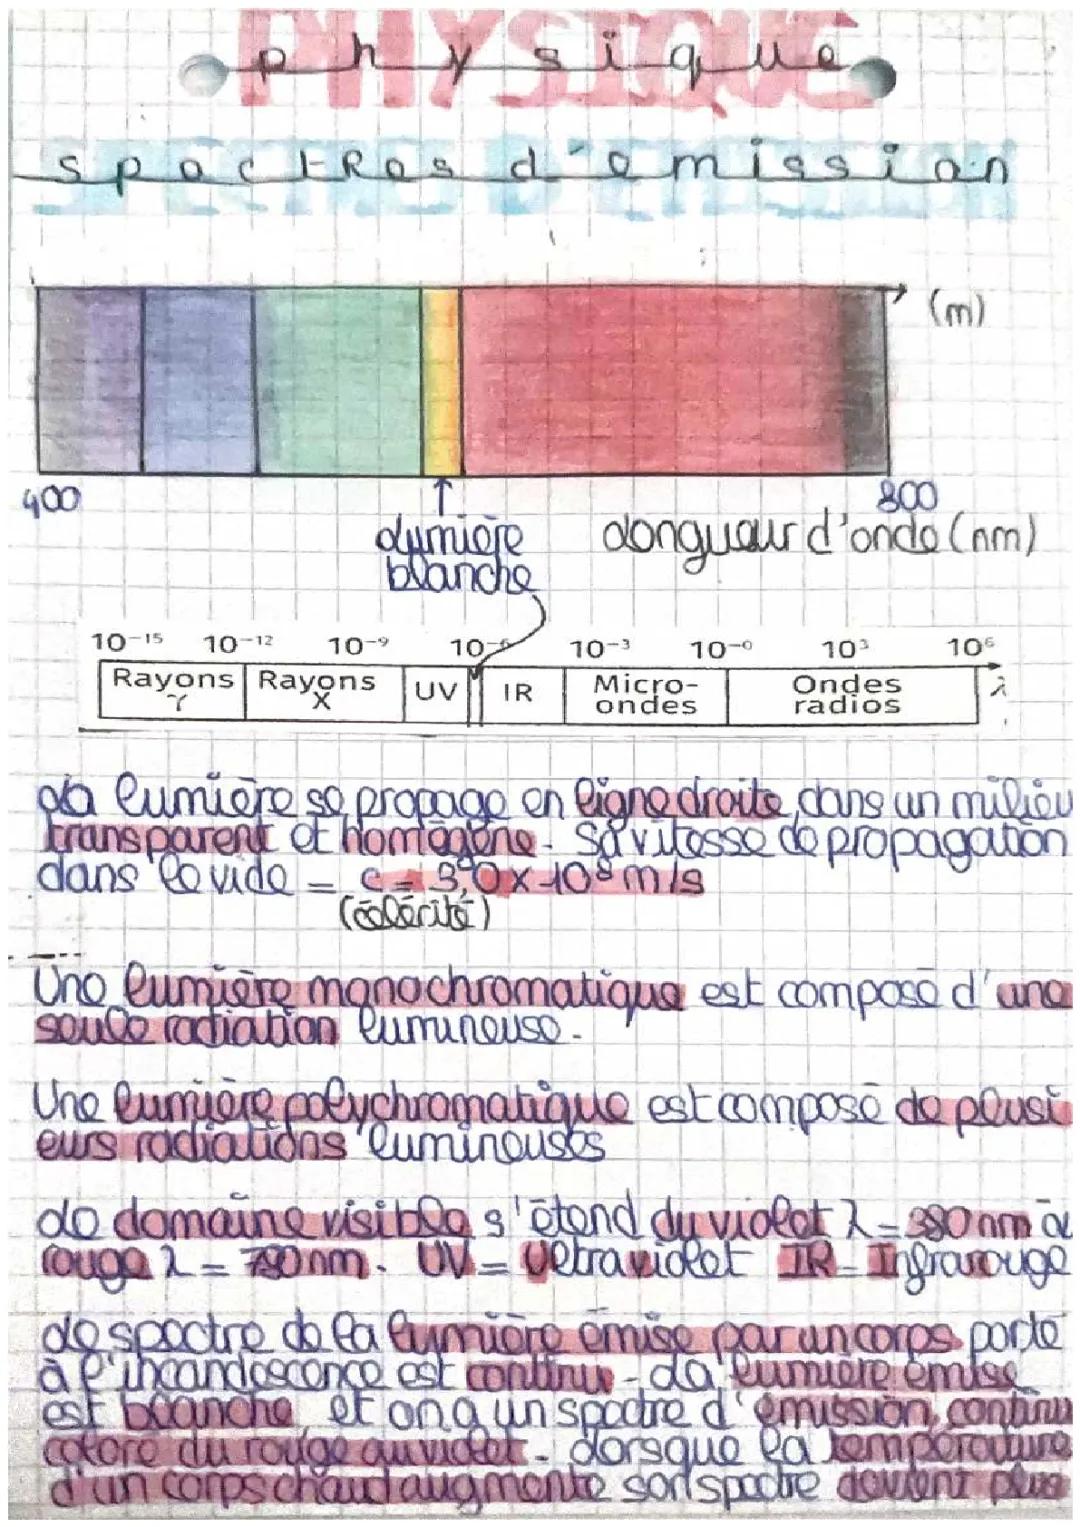 PHYSIQUE
physique
SPECTRES D'EMISSION
spectres d'émission
(m)
400
800
Lumière
blanche
Longueur d'onde (nm)
10-15 10-12 10-9 10-6 10-3 10-0 10³ 10⁶
Rayons γ Rayons X UV IR Micro-ondes Ondes radios λ
La lumière se propage en ligne droite dans un milieu
transparent et homogène. Sa vitesse de propagation
dans le vide = c = 3,0 x 10⁸ m/s
(célérité)
Une lumière monochromatique est composé d'une
seule radiation lumineuse.
Une lumière polychromatique est composé de plusi
eurs radiations lumineuses
Le domaine visible s'étend du violet λ = 380 nm au
rouge λ = 780 nm. UV = Ultraviolet IR = Infrarouge
Le spectre de la lumière émise par un corps porté
à l'incandescence est continu. La lumière émise
est blanche et on a un spectre d'émission continu
coloré du rouge au violet. Lorsque la température
d'un corps chaud augmente son spectre devient plus